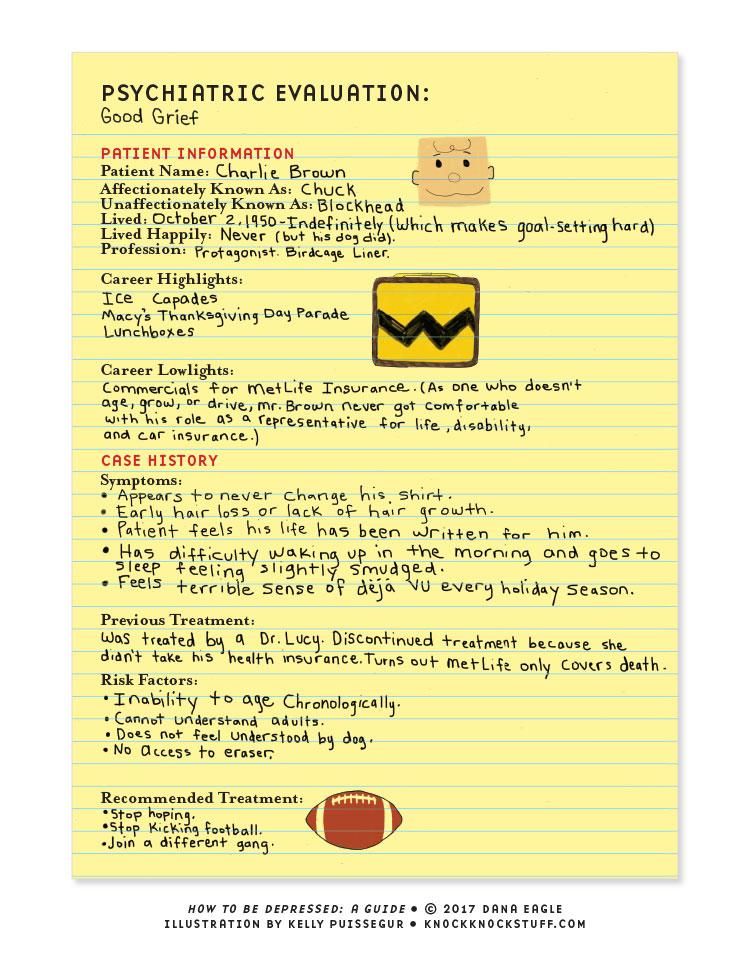 PSYCHIATRIC EVALUATION:
Good Grief
PATIENT INFORMATION
Patient Name: Charlie Brown
Affectionately Known As: Chuck
Unaffectionately Known As: Blockhead
Lived: October 2, 1950-Indefinitely (which makes goal-setting hard)
Lived Happily: Never (but his dog did).
Profession: Protagonist. Birdcage Liner.
Career Highlights:
Ice Capades
Macy's Thanksgiving Day Parade
Lunchboxes
Career Lowlights:
Commercials for MetLife Insurance. (As one who doesn't
age, grow, or drive, Mr. Brown never got comfortable
with his role as a representative for life, disability,
and car insurance.)
CASE HISTORY
Symptoms:
• Appears to never change his shirt.
• Early hair loss or lack of hair growth.
• Patient feels his life has been written for him.
• Has difficulty waking up in the morning and goes to
sleep feeling slightly smudged.
• Feels terrible sense of déjà vu every holiday season.
Previous Treatment:
Was treated by a Dr. Lucy. Discontinued treatment because she
didn't take his health insurance. Turns out MetLife only covers death.
Risk Factors:
• Inability to age Chronologically.
• Cannot understand adults.
• Does not feel understood by dog.
• No access to eraser.
Recommended Treatment:
• Stop hoping.
• Stop kicking football.
• Join a different gang.
HOW TO BE DEPRESSED: A GUIDE • © 2017 DANA EAGLE
ILLUSTRATION BY KELLY PUISSEGUR • KNOCKKNOCKSTUFF.COM